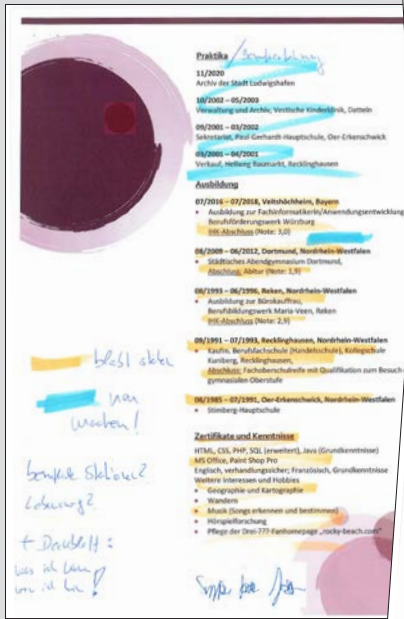 Praktika /
11/2020
Archiv der Stadt Ludwigshafen
10/2002 – 05/2003
Verwaltung und Archiv, Vestische Kinderklinik, Datteln
09/2001 – 03/2002
Sekretariat, Paul-Gerhardt-Hauptschule, Oer-Erkenschwick
03/2001 – 04/2001
Verkauf, Hellweg Baumarkt, Recklinghausen
Ausbildung
07/2016 – 07/2018, Veitshöchheim, Bayern
• Ausbildung zur Fachinformatikerin/Anwendungsentwicklung
Berufsförderungswerk Würzburg
IHK-Abschluss (Note: 3,0)
08/2009 – 06/2012, Dortmund, Nordrhein-Westfalen
• Städtisches Abendgymnasium Dortmund,
Abschluss: Abitur (Note: 1,9)
08/1993 – 06/1996, Reken, Nordrhein-Westfalen
• Ausbildung zur Bürokauffrau,
Berufsbildungswerk Maria-Veen, Reken
IHK-Abschluss (Note: 2,9)
09/1991 – 07/1993, Recklinghausen, Nordrhein-Westfalen
• Kaufm. Berufsfachschule (Handelsschule), Kollegschule
Kuniberg, Recklinghausen,
Abschluss: Fachoberschulreife mit Qualifikation zum Besuch
gymnasialen Oberstufe
08/1985 – 07/1991, Oer-Erkenschwick, Nordrhein-Westfalen
• Stimberg-Hauptschule
Zertifikate und Kenntnisse
HTML, CSS, PHP, SQL (erweitert), Java (Grundkenntnisse)
MS Office, Paint Shop Pro
Englisch, verhandlungssicher; Französisch, Grundkenntnisse
Weitere Interessen und Hobbies
• Geographie und Kartographie
• Wandern
• Musik (Songs erkennen und bestimmen)
• Hörspielforschung
• Pflege der Drei-???-Fanhomepage „rocky-beach.com"
bleibt stehen
neu
machen!